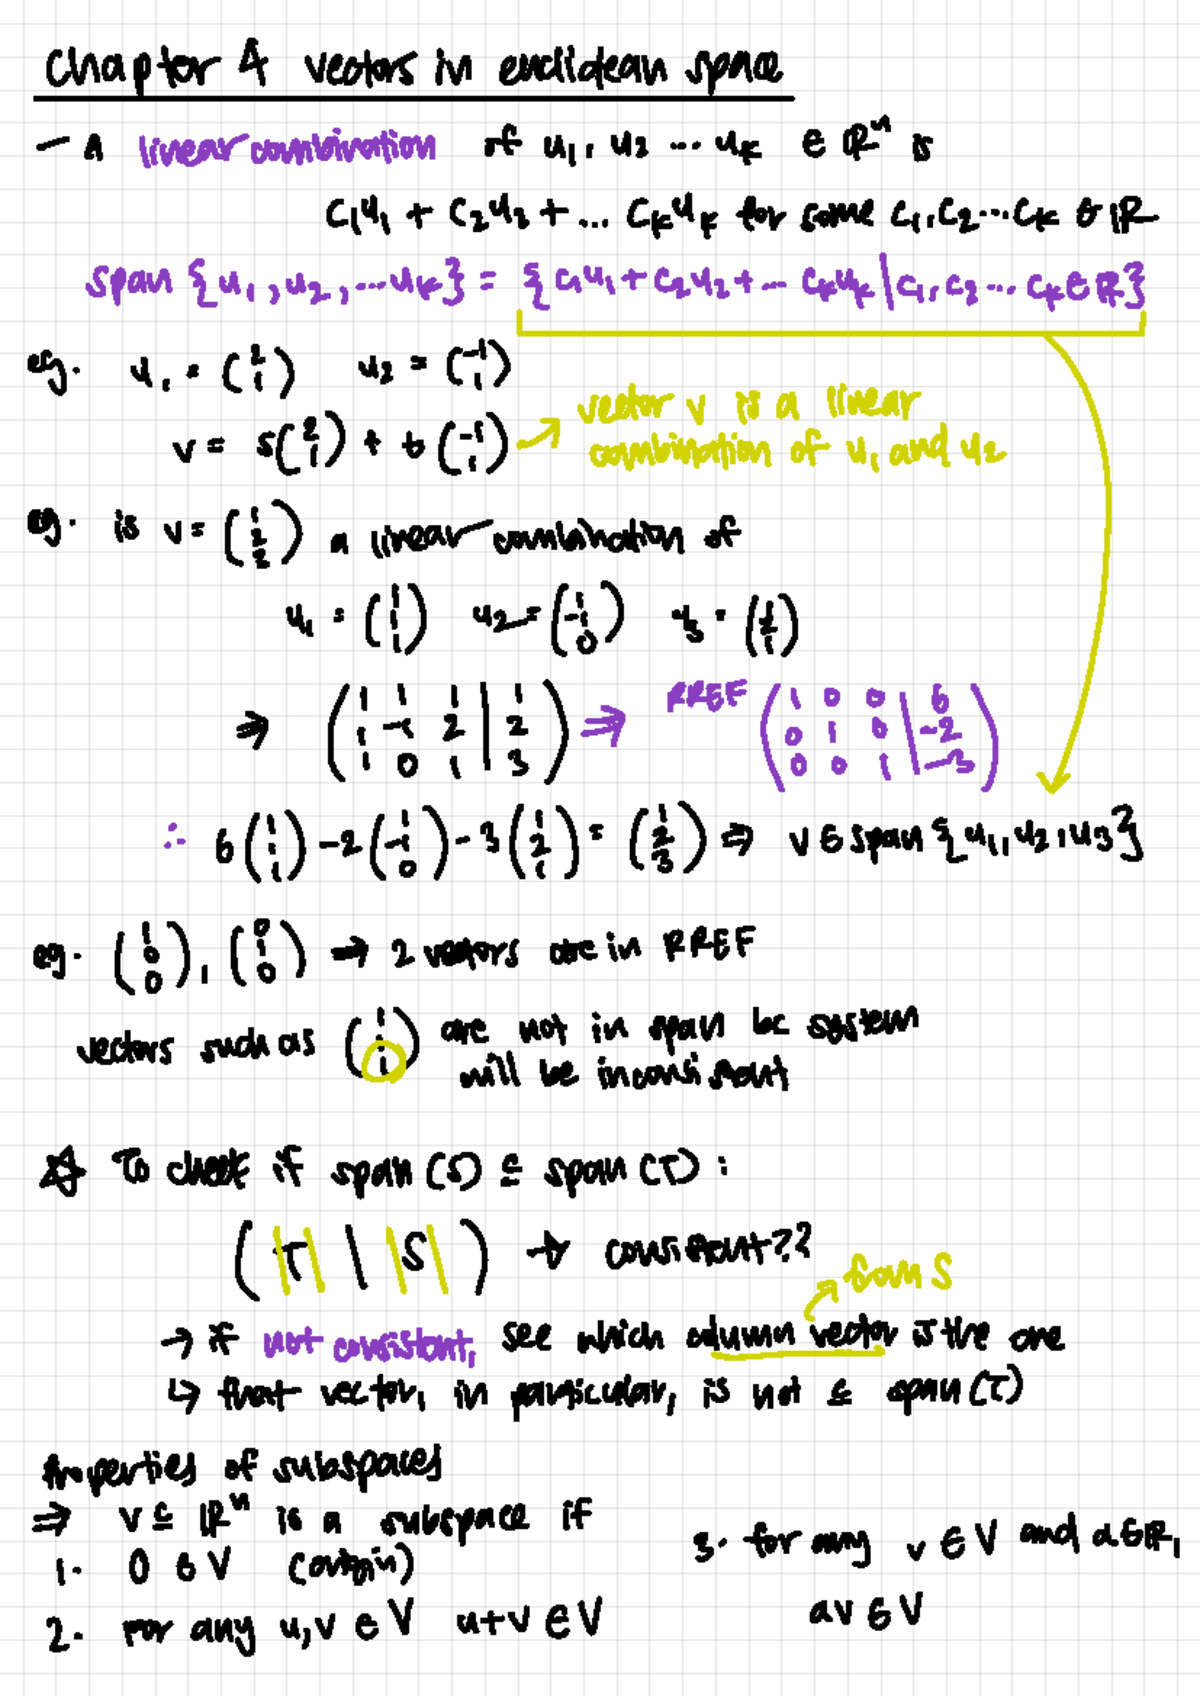 Chapter 4 vectors in euclidean space
- A linear combination of u₁, u₂ ... uₖ ∈ ℝⁿ is
c₁u₁ + c₂u₂ + ... cₖuₖ for some c₁, c₂ ... cₖ ∈ ℝ
span {u₁, u₂, ... uₖ} = {c₁u₁ + c₂u₂ + ... cₖuₖ | c₁, c₂ ... cₖ ∈ ℝ}
eg. u₁ = (2 1) u₂ = (-1 1)
v = s(2 1) + t(-1 1) → vector v is a linear
combination of u₁ and u₂
eg. is v = (1 2 2) a linear combination of
u₁ = (1 1 1) u₂ = (1 -1 0) u₃ = (1 2 1)
⇒ (1 1 1 | 1
1 -1 2 | 2
1 0 1 | 3) ⇒ RREF (1 0 0 | 6
0 1 0 | -2
0 0 1 | -3)
∴ 6(1 1 1) - 2(1 -1 0) - 3(1 2 1) = (1 2 3) ⇒ v ∈ span {u₁, u₂, u₃}
eg. (1 0 0), (0 1 0) → 2 vectors are in RREF
vectors such as (1 1 1) are not in span bc system
will be inconsistent
☆ To check if span (S) ⊆ span (T) :
( T | S ) → consistent??
from S
→ if not consistent, see which column vector is the one
↳ that vector, in particular, is not ⊆ span (T)
Properties of subspaces
⇒ V ⊆ ℝⁿ is a subspace if
1. 0 ∈ V (origin)
2. For any u, v ∈ V u+v ∈ V
3. for any v ∈ V and a ∈ ℝ,
av ∈ V